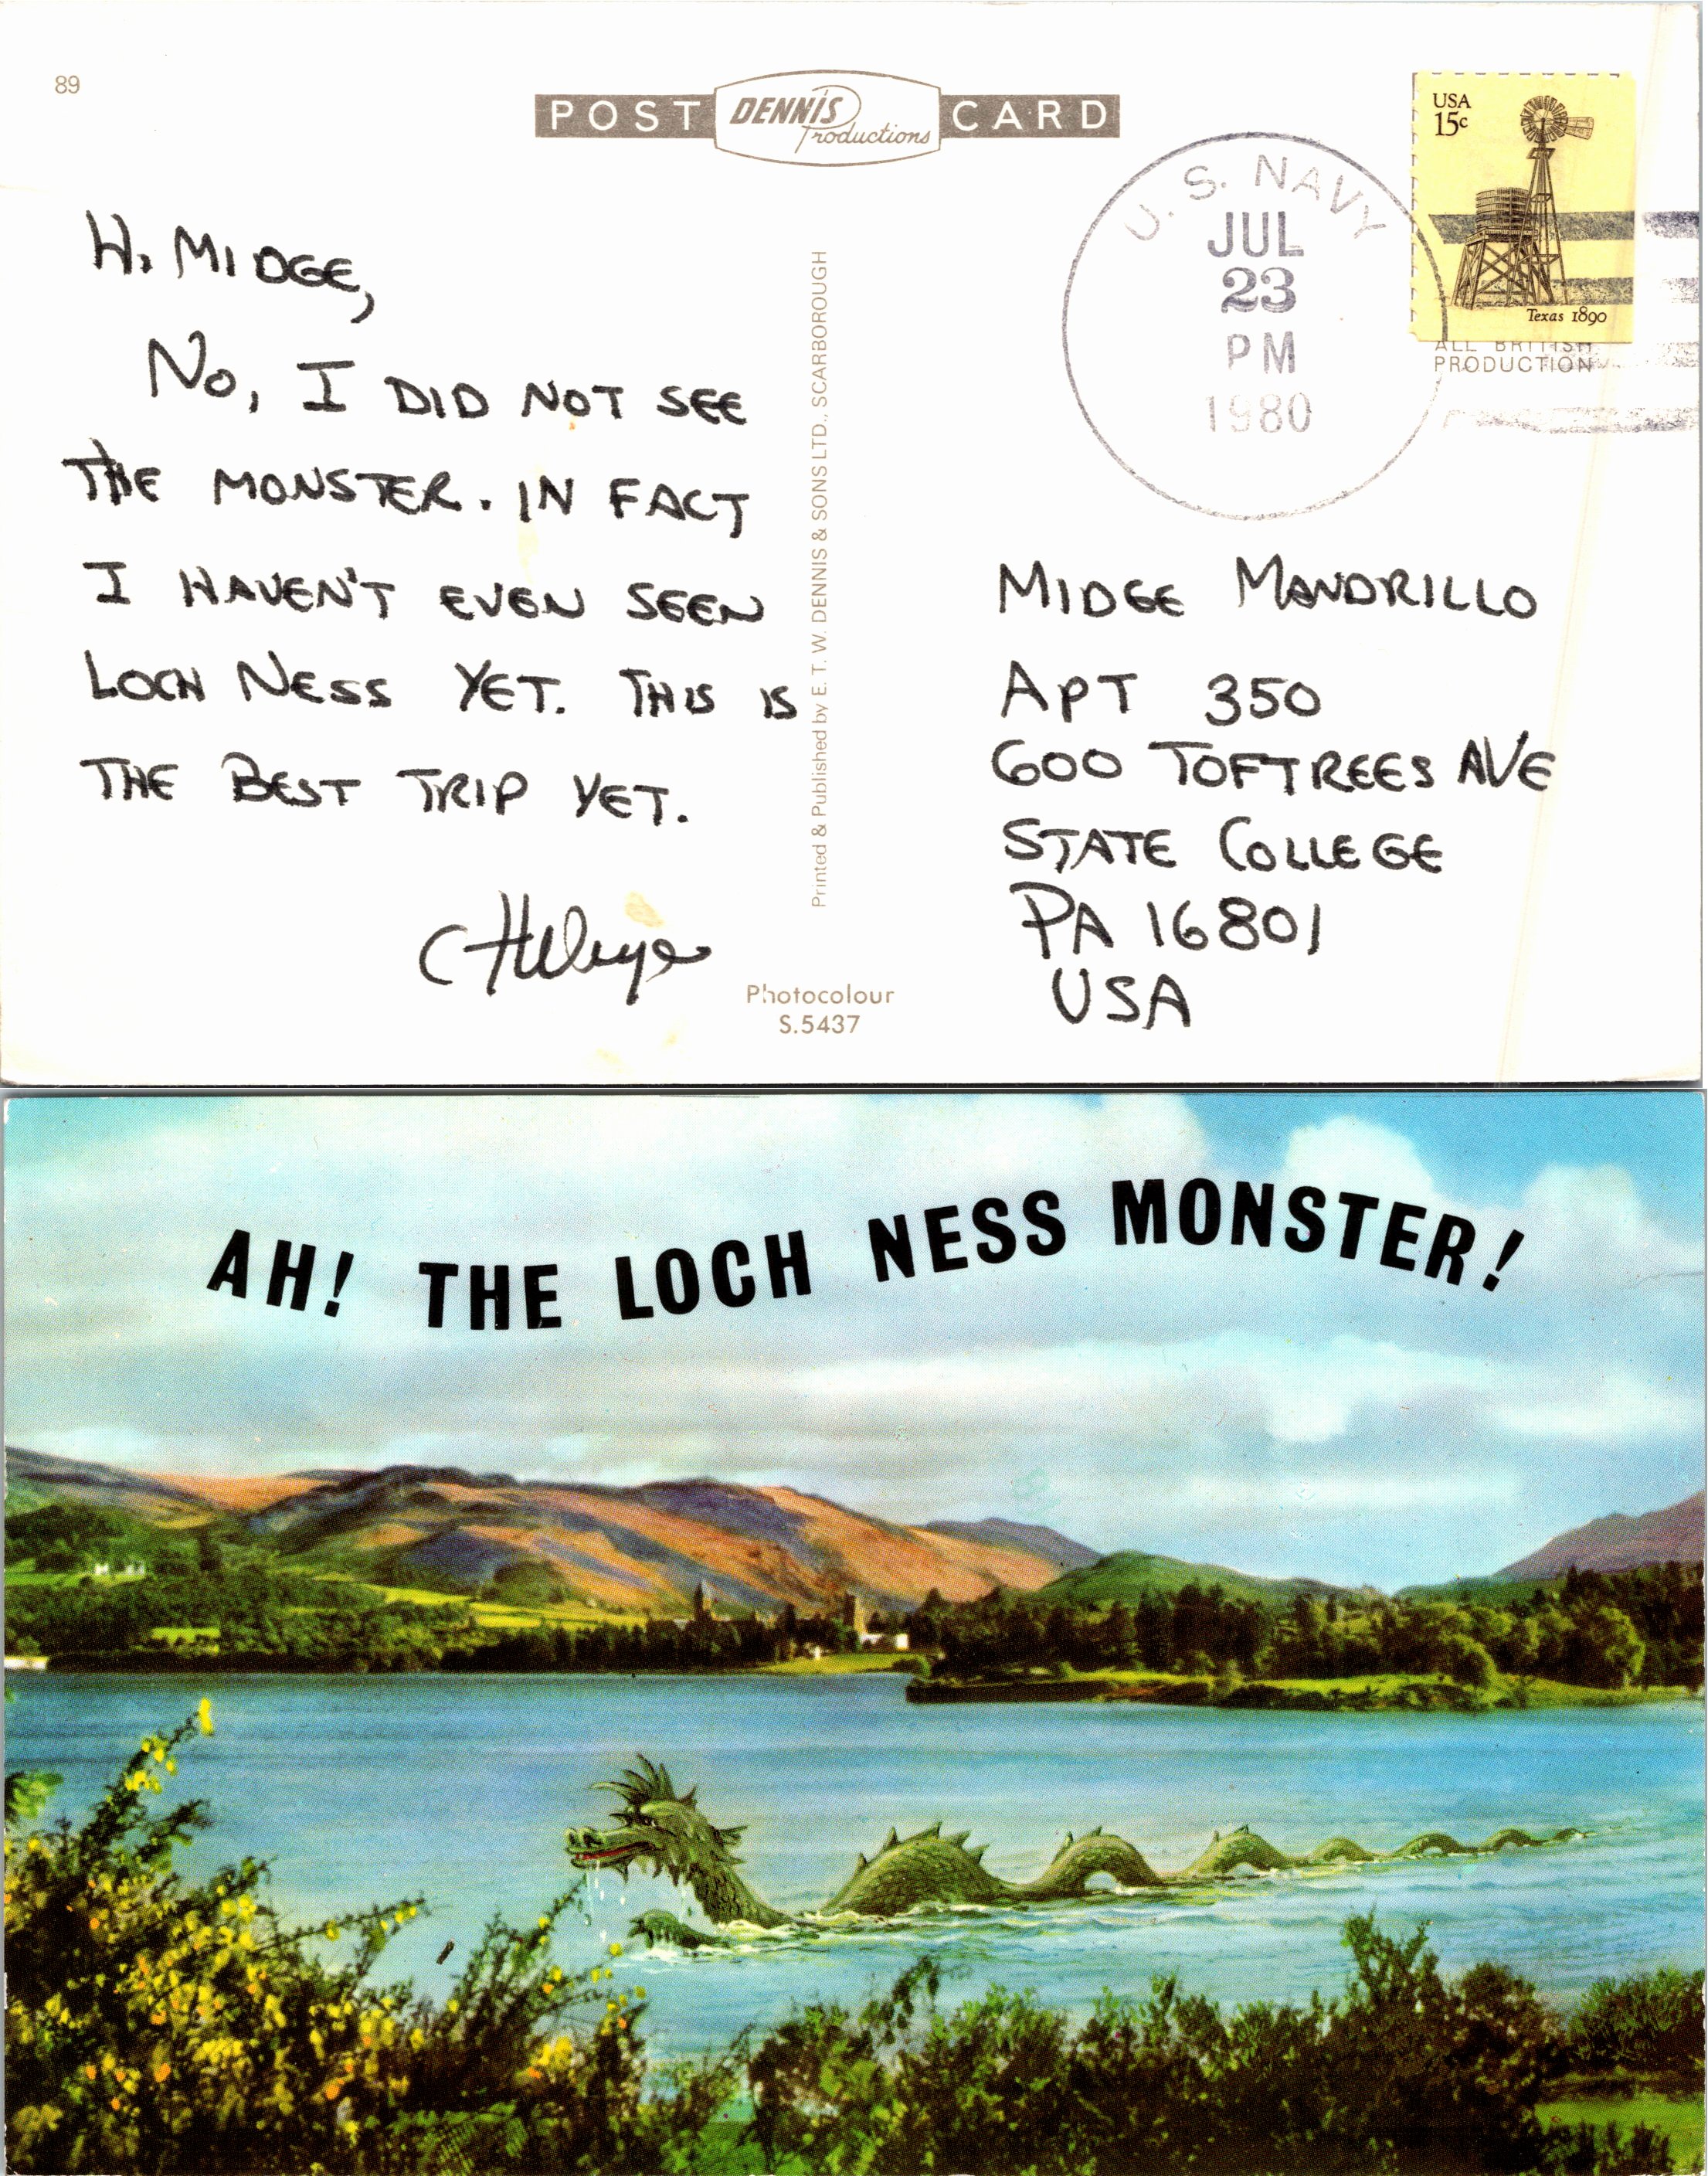 89
POST DENNIS Productions CARD
USA
15c
Texas 1890
U.S. NAVY
JUL
23
PM
1980
ALL BRITISH
PRODUCTION
Hi MIDGE,
NO, I DID NOT SEE
THE MONSTER. IN FACT
I HAVEN'T EVEN SEEN
LOCH NESS YET. THIS IS
THE BEST TRIP YET.
Printed & Published by E. T. W. DENNIS & SONS LTD., SCARBOROUGH
MIDGE MANDRILLO
APT 350
600 TOFTREES AVE
STATE COLLEGE
PA 16801
USA
Photocolour
S.5437
AH! THE LOCH NESS MONSTER!